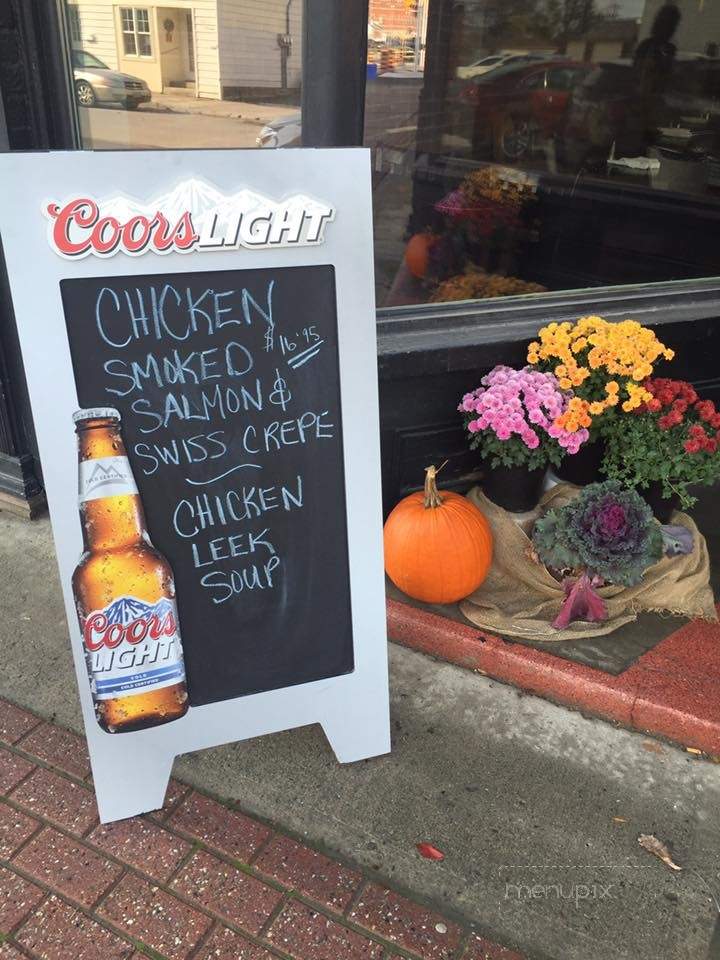 Coors LIGHT
CHICKEN
SMOKED $16.95
SALMON &
SWISS CREPE
CHICKEN
LEEK
SOUP
Coors
LIGHT
menupix